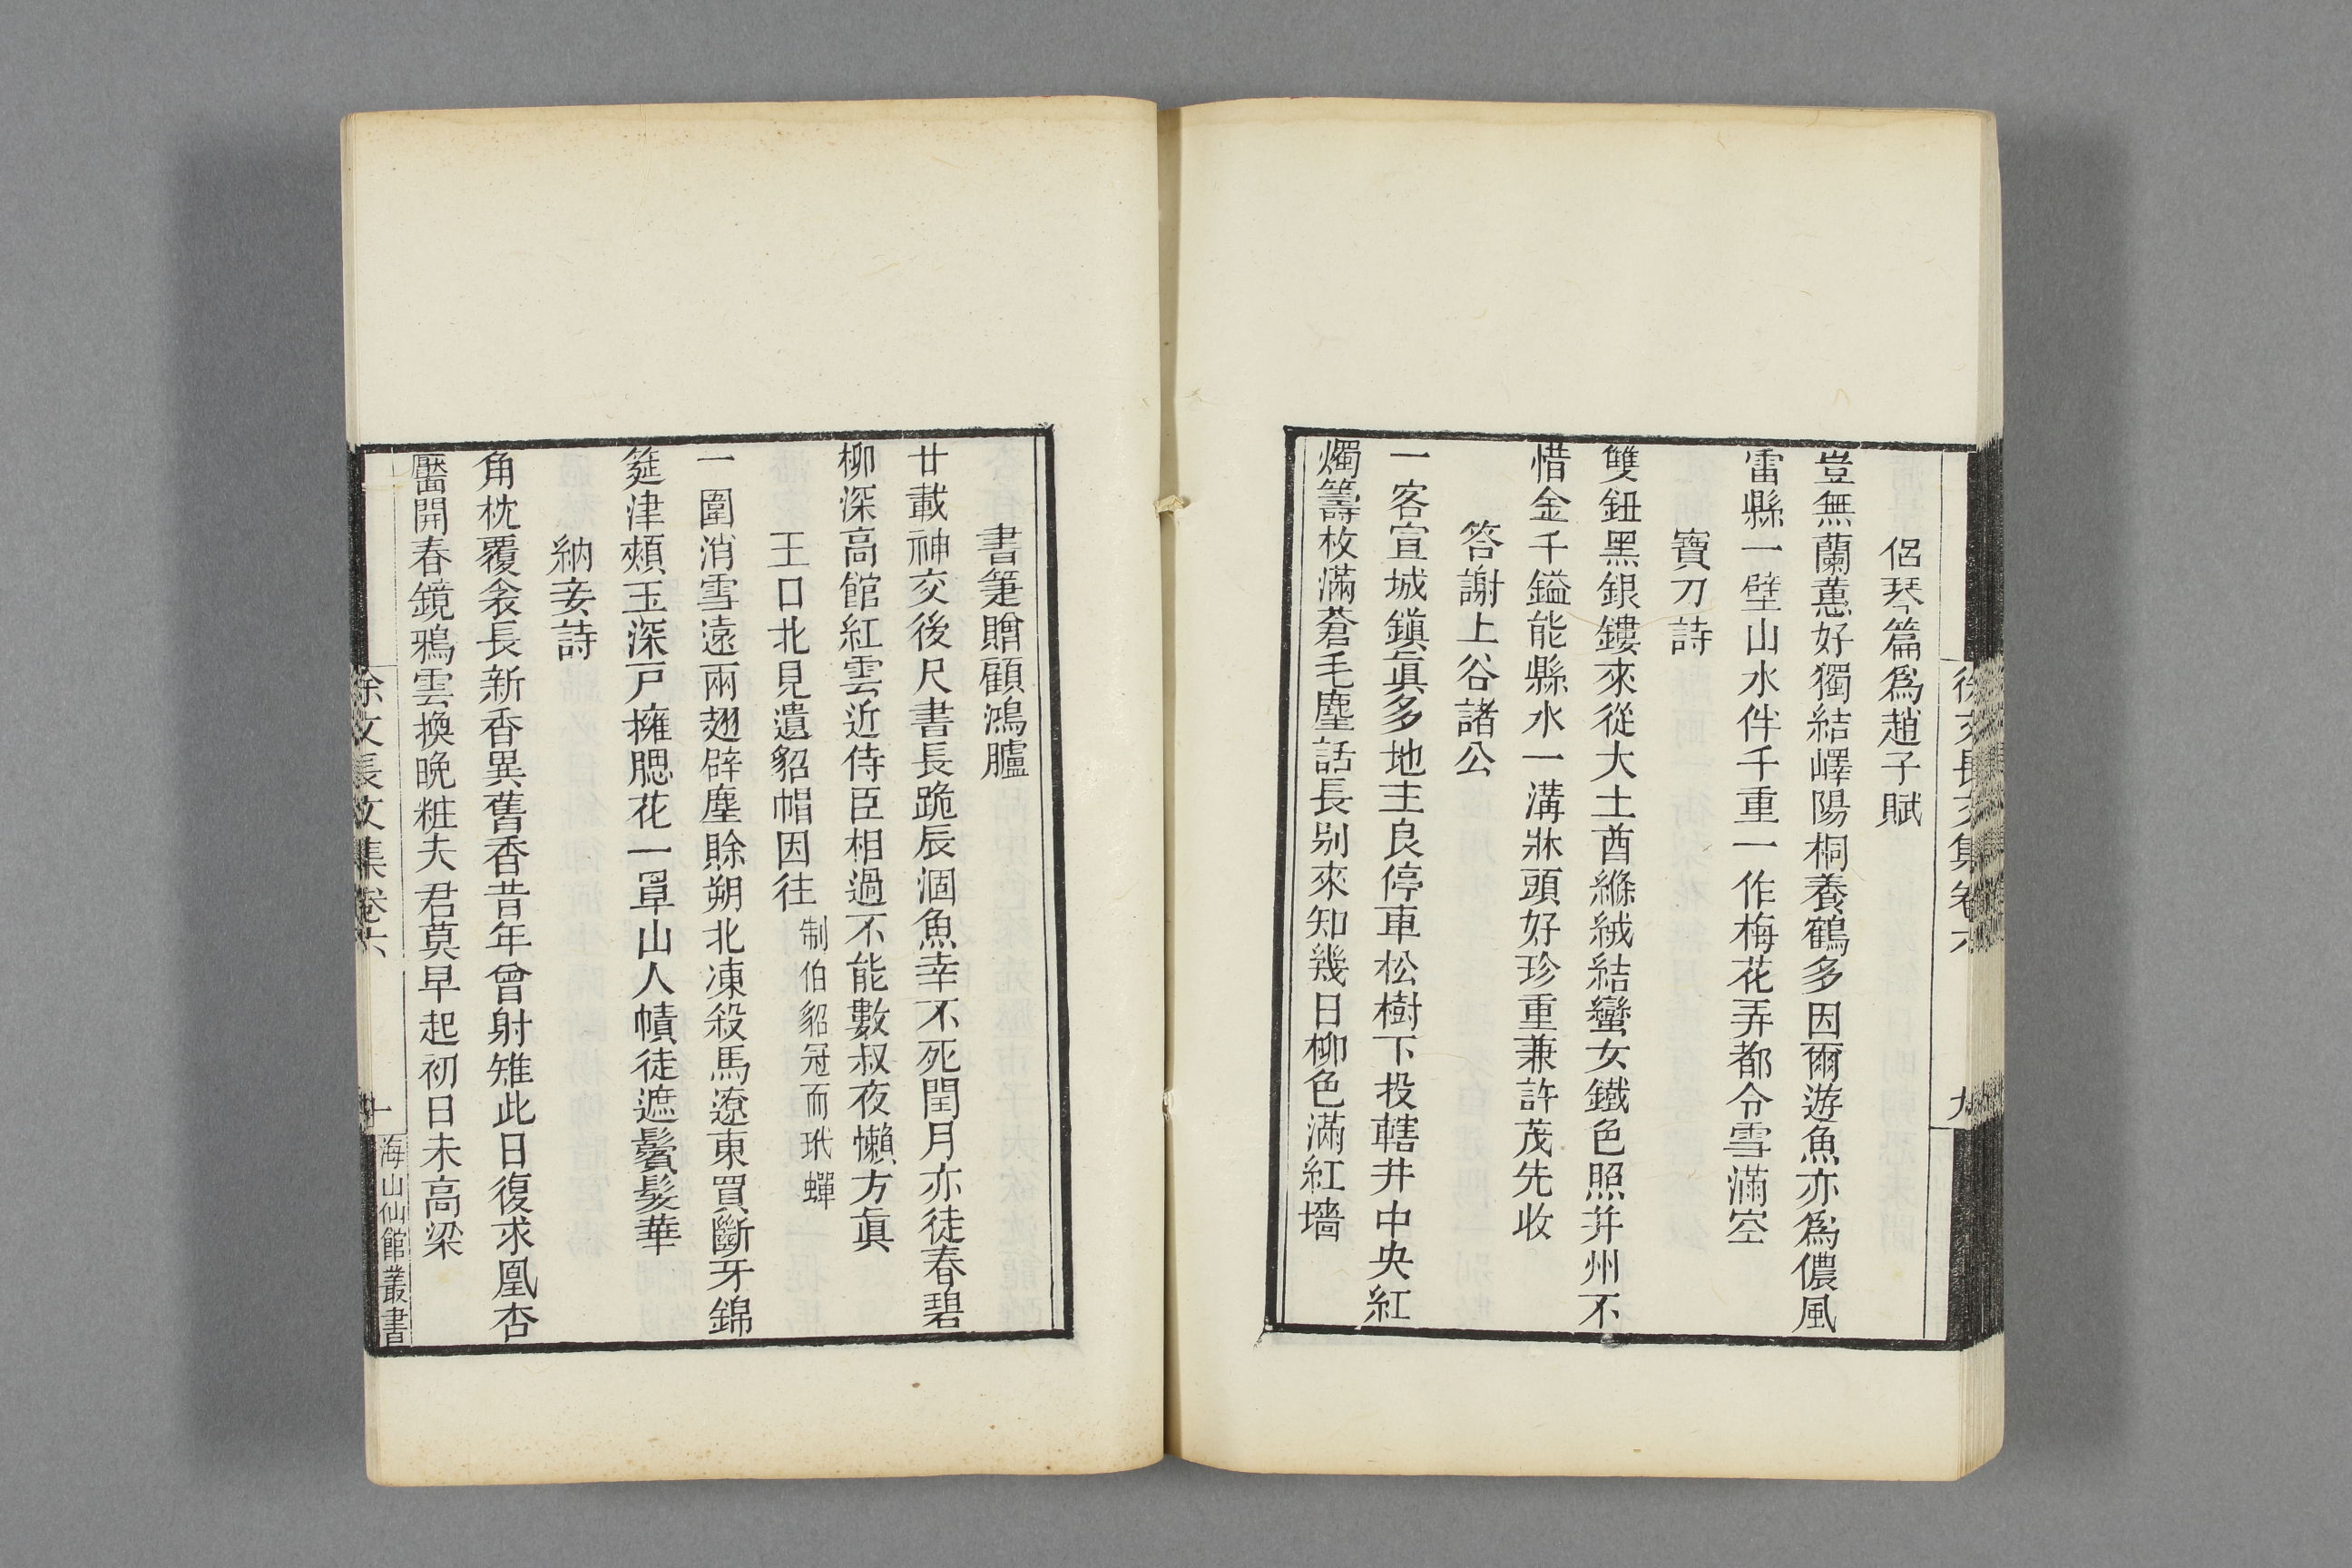 徐文長文集卷六
九
侶琴篇爲趙子賦
豈無蘭蕙好獨結嶧陽桐養鶴多因爾遊魚亦爲儂風
雷縣一壁山水伴千重一作梅花弄都令雪滿空
寶刀詩
雙鈕黑銀鏤來從大土酋縧絨結蠻女鐵色照并州不
惜金千鎰能縣水一溝牀頭好珍重兼許茂先收
答謝上谷諸公
一客宣城鎮眞多地主良停車松樹下投轄井中央紅
燭籌枚滿蒼毛麈話長别來知幾日柳色滿紅墻
書箑贈顧鴻臚
廿載神交後尺書長跪辰涸魚幸不死閏月亦徒春碧
柳深高館紅雲近侍臣相過不能數叔夜懶方眞
王口北見遺貂帽因往制伯貂冠而玳蟬
一圍消雪遠兩翅辟塵賒朔北凍殺馬遼東買斷牙錦
筵津頰玉深戸擁腮花一罩山人幘徒遮鬢髮華
納妾詩
角枕覆衾長新香異舊香昔年曾射雉此日復求凰杏
靨開春鏡鴉雲換晩粧夫君莫早起初日未高梁
徐文長文集卷六
十
海山仙館叢書